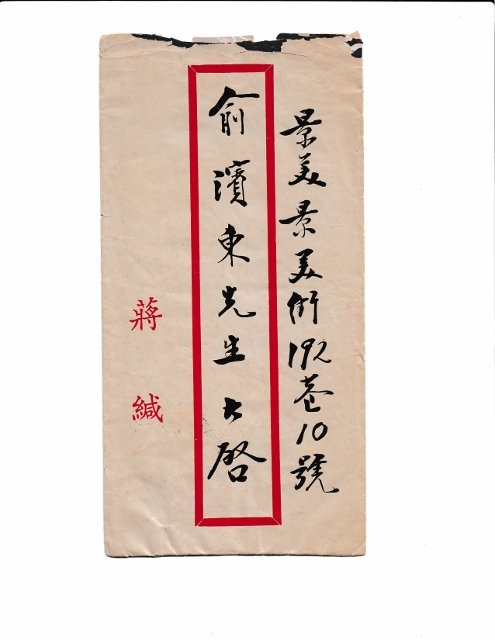 景美景美街192巷10號
俞濱東先生大啓
蔣緘